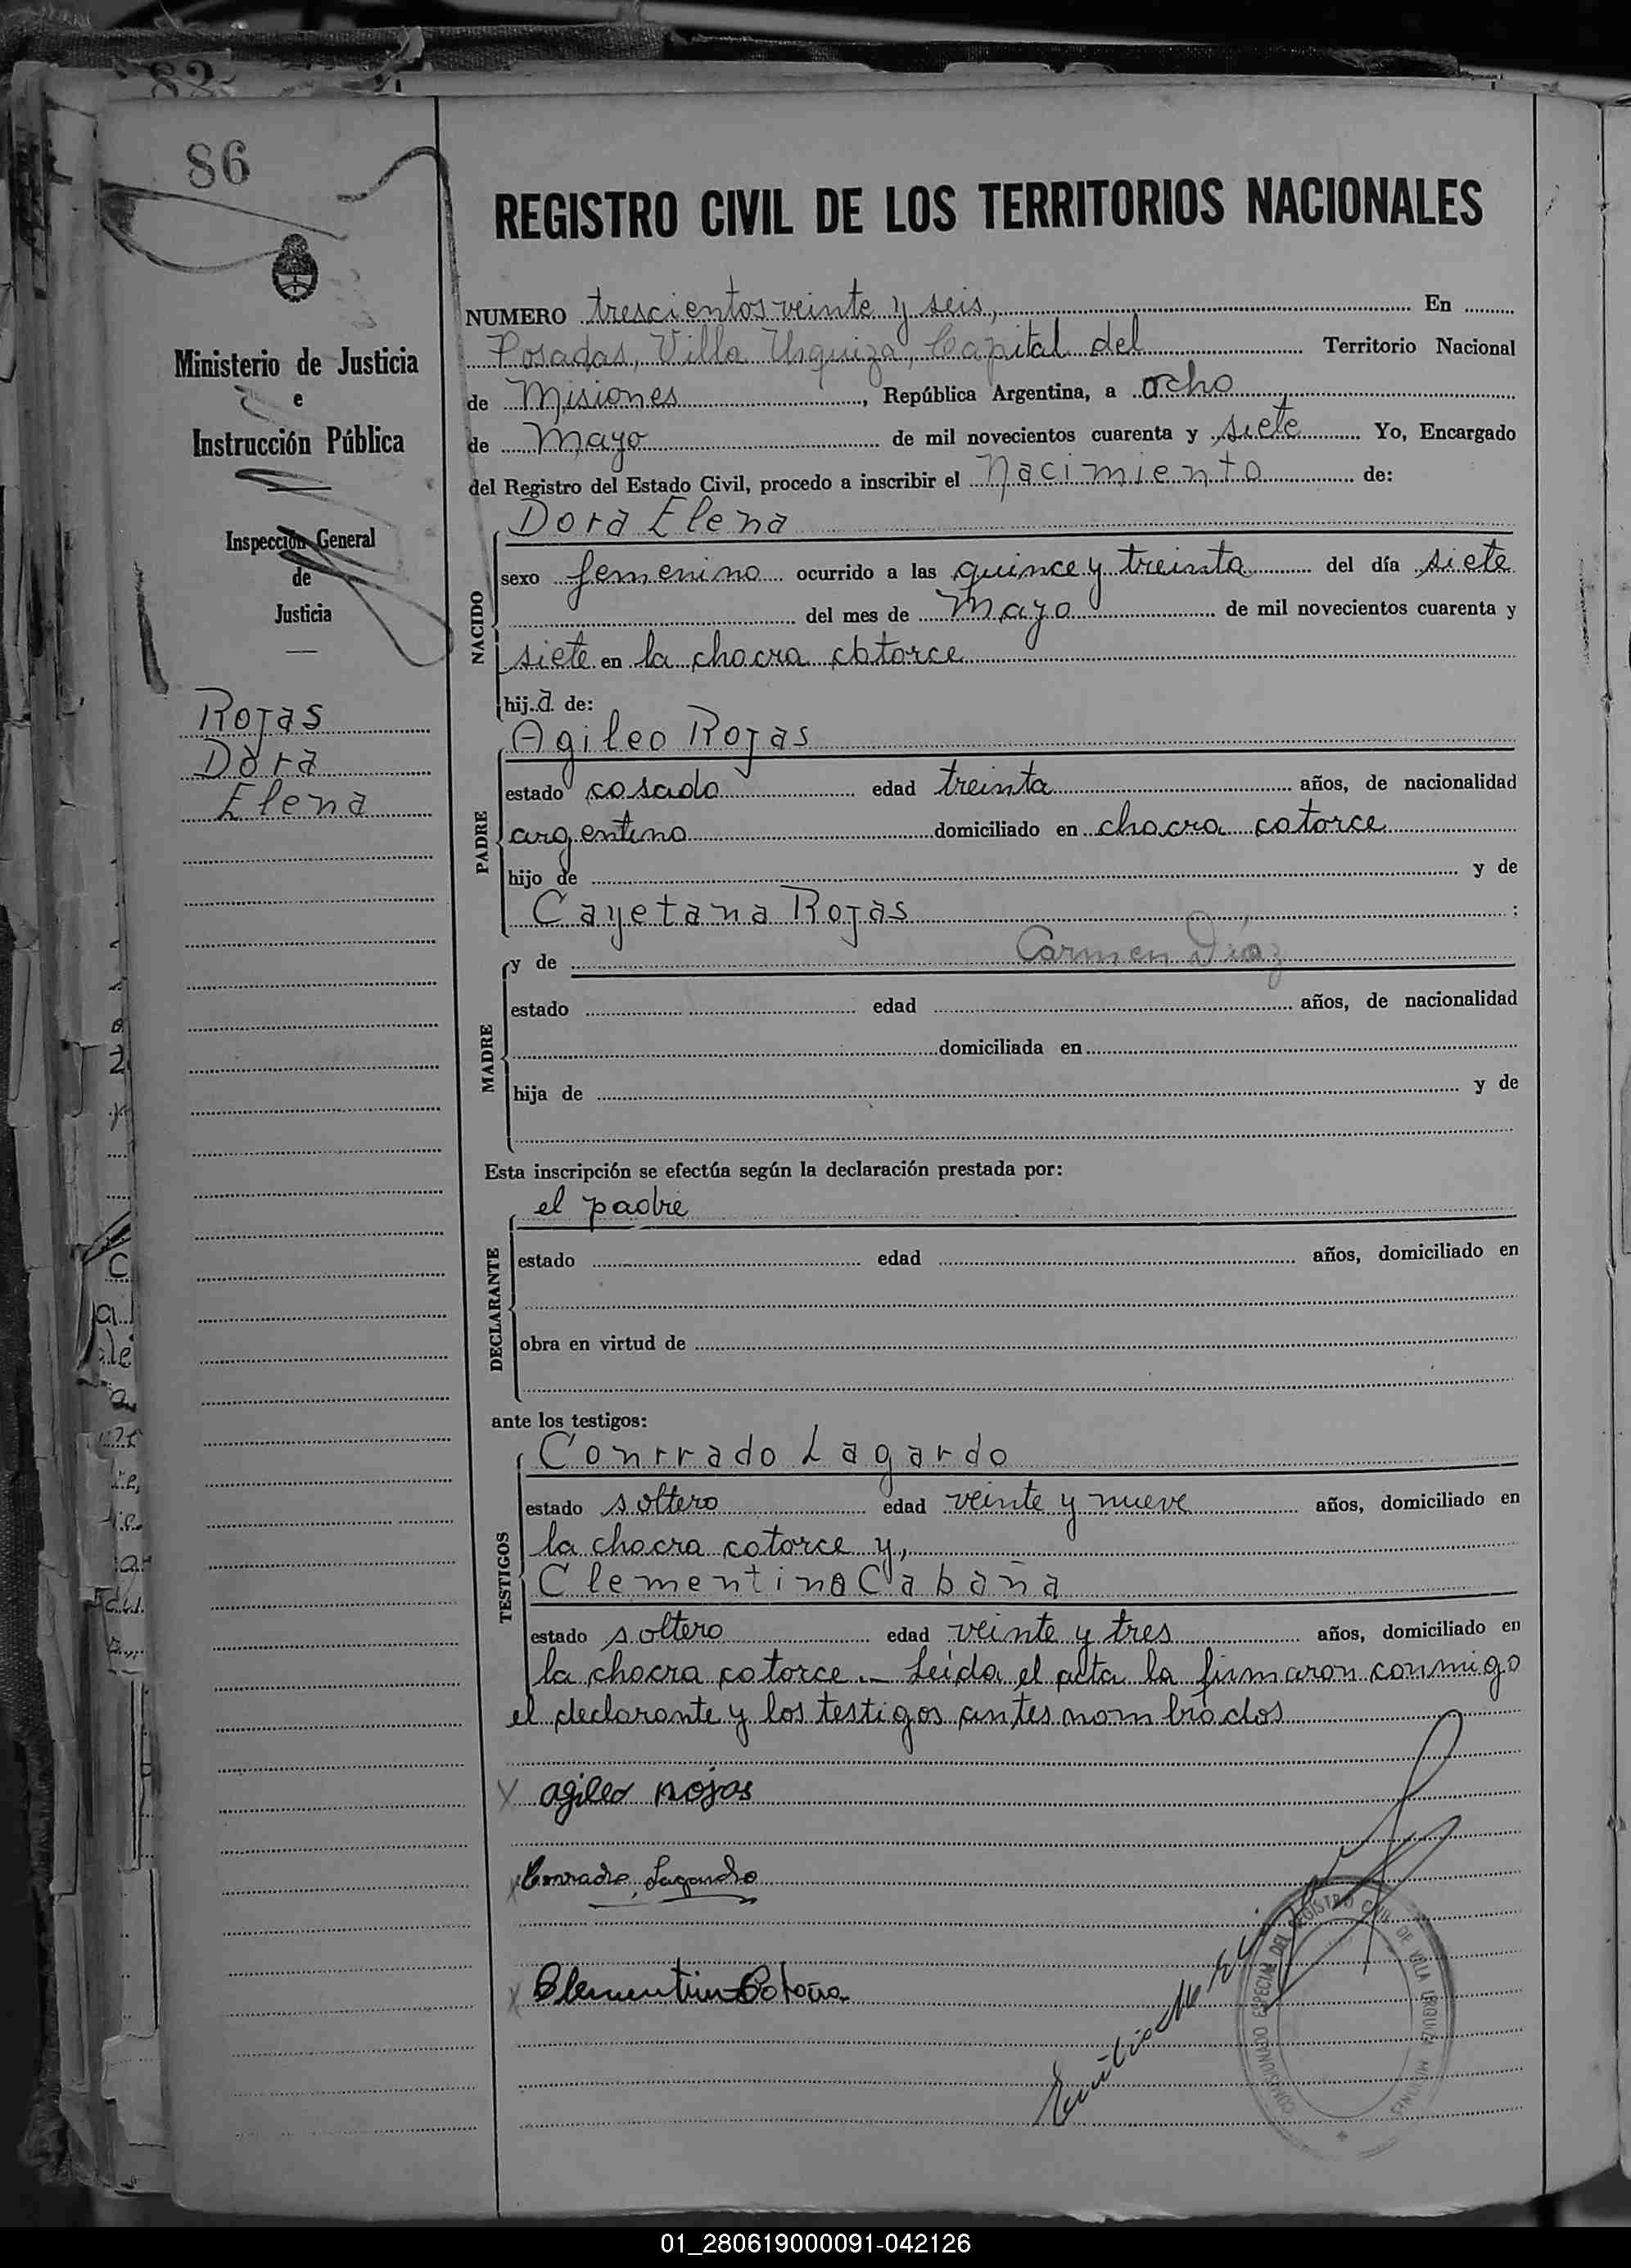 82
86
REGISTRO CIVIL DE LOS TERRITORIOS NACIONALES
Ministerio de Justicia
e
Instrucción Pública
Inspección General
de
Justicia
Rojas
Dora
Elena
NUMERO trescientos veinte y seis, En
Posadas, Villa Urquiza, Capital del Territorio Nacional
de Misiones, República Argentina, a ocho
de Mayo de mil novecientos cuarenta y siete Yo, Encargado
del Registro del Estado Civil, procedo a inscribir el Nacimiento de:
NACIDO
Dora Elena
sexo femenino ocurrido a las quince y treinta del día siete
del mes de Mayo de mil novecientos cuarenta y
siete en la chacra catorce
hija de:
PADRE
Agileo Rojas
estado casado edad treinta años, de nacionalidad
argentino domiciliado en chacra catorce
hijo de y de
Cayetana Rojas :
MADRE
y de Carmen Díaz
estado edad años, de nacionalidad
domiciliada en
hija de y de
Esta inscripción se efectúa según la declaración prestada por:
DECLARANTE
el padre
estado edad años, domiciliado en
obra en virtud de
ante los testigos:
TESTIGOS
Conrrado Lagardo
estado soltero edad veinte y nueve años, domiciliado en
la chacra catorce y,
Clementino Cabaña
estado soltero edad veinte y tres años, domiciliado en
la chacra catorce.- Leída el acta la firmaron conmigo
el declarante y los testigos antes nombrados
X agileo rojas
X Conrado Lagardo
X Clementino Cabaña
COMISIONADO ESPECIAL DEL REGISTRO CIVIL DE VILLA URQUIZA MISIONES
01_280619000091-042126